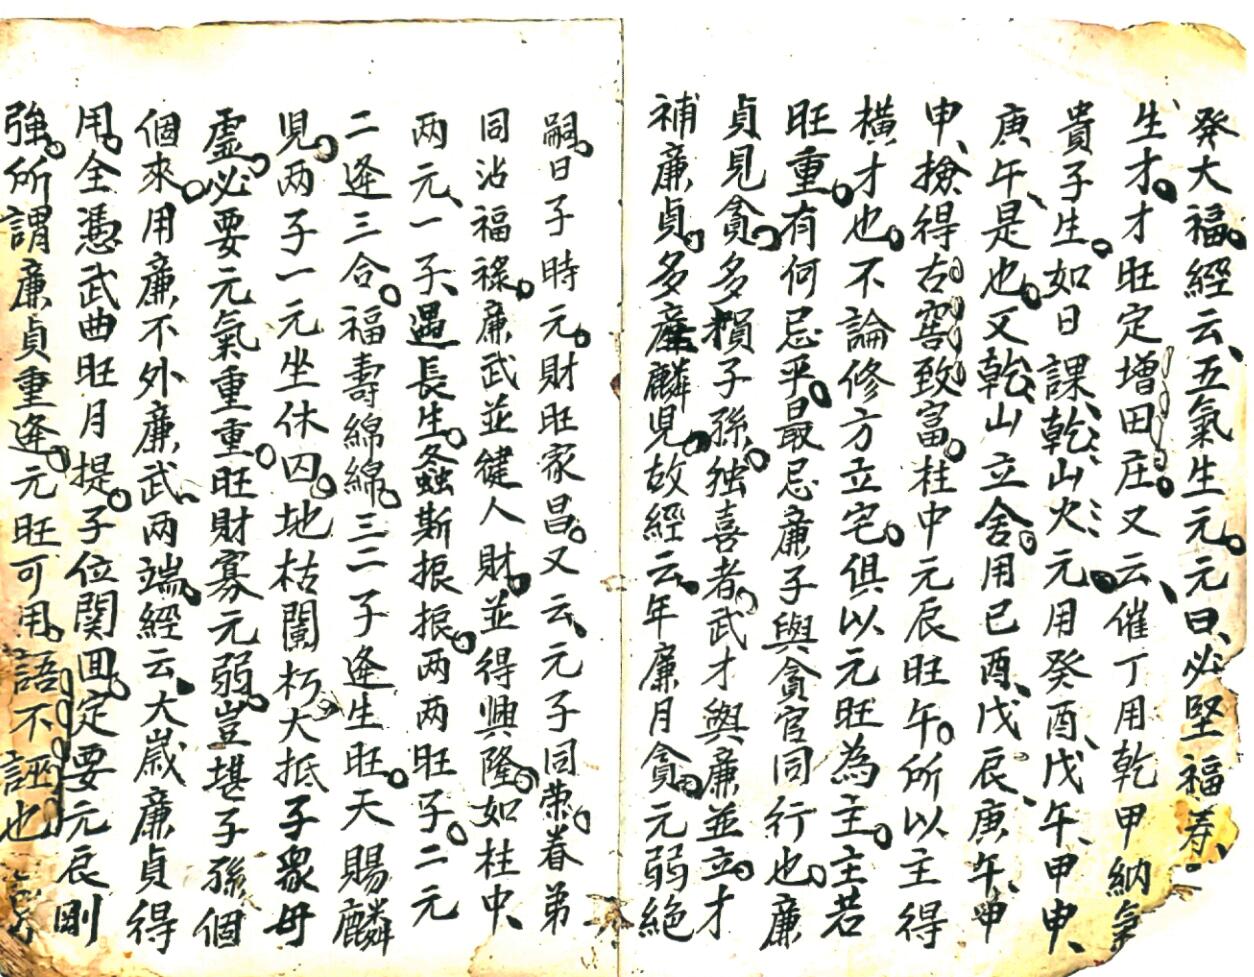 癸大福。經云、五氣生元。元曰、必堅福寿、
生才。才旺定增田庄。又云、催丁用乾甲納氣
貴子生。如日課、乾山火元。用癸酉、戊午、甲申、
庚午、是也。又乾山立舍。用已酉、戊辰、庚午、甲
申、撿得古窖致富。柱中元辰旺午。所以主得
橫才也。不論修方立宅。俱以元旺為主。主若
旺重。有何忌乎。最忌廉子與貪官同行也。廉
貞見貪。多損子孫。独喜者。武才與廉並立。才
補廉貞。多產麟児。故經云。年廉月貪。元弱絕
嗣。日子時元。財旺家昌。又云、元子同荣。眷弟
同沾福禄。廉武並健人財。並得興隆。如柱中、
两元、一子、遇長生。螽斯振振。两两旺子。二元
二逢三合。福壽綿綿。三二子逢生旺。天賜麟
児。两子一元坐休囚。地枯闌朽。大抵子衆母
虚。必要元氣重重。旺財寡元弱。豈堪子孫個
個來。用廉不外廉武、两端。經云、大嵗廉貞得
用。全憑武曲旺月提。子位関囬。定要元辰剛
強。所謂廉貞重逢。元旺可用。語不誣也